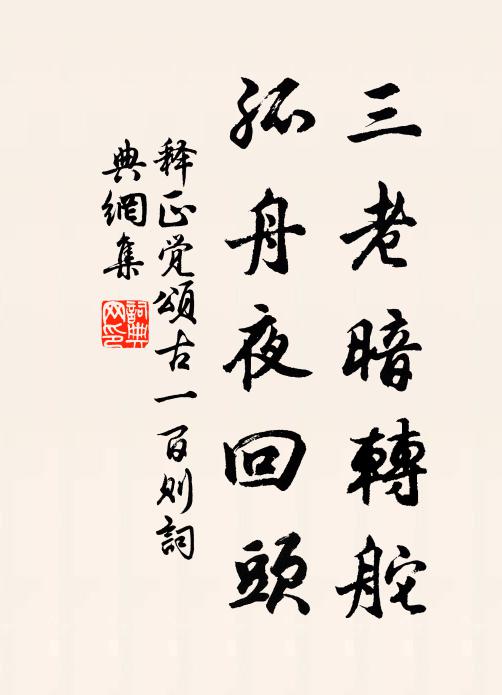 三老暗轉舵
孤舟夜回頭
释正覺頌古一百则詞
典網集
詞典网印